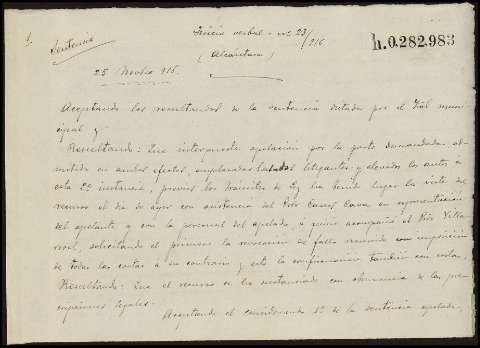 Sentencia
Juicio verbal - nº 23/916
h.0.282.983
(Alcántara)
25 Novbre 915.
Aceptando los resultandos de la sentencia dictada por el Tral muni-
cipal y
Resultando: Que interpuesta apelación por la parte demandada, ad-
mitida en ambos efectos, emplazados los litigantes y elevados los autos á
esta 2ª instancia, previos los trámites de ley ha tenido lugar la vista del
recurso el día de ayer con asistencia del Pror Casas Cava en representación
del apelante y con la personal del apelado, á quien acompañó el Pror Villa-
rreal, solicitando el primero la revocación del fallo recurrido con imposición
de todas las costas á su contrario y este la confirmación también con costas.
Resultando: Que el recurso se ha sustanciado con observancia de las pres-
cripciones legales.
Aceptando el considerando 1º de la sentencia apelada,